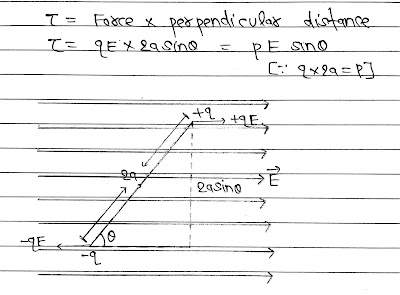 τ = Force × perpendicular distance
τ = qE × 2a sinθ = pE sinθ
[∵ q×2a = P]
+q
+qE
2a
E⃗
2asinθ
-qE
θ
-q